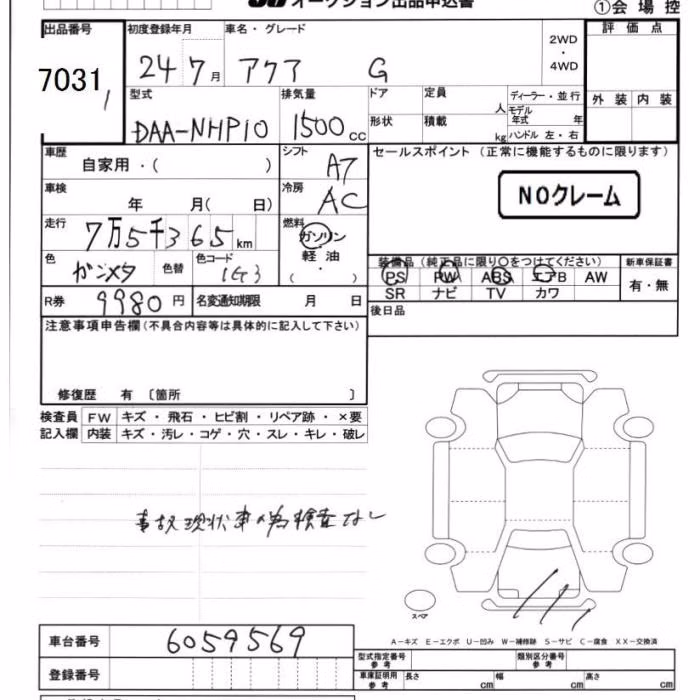 オークション出品申込書
①会場控
出品番号 初度登録年月 車名・グレード 2WD・4WD 評価点
7031 24 7月 アクア G
1
型式 排気量 ドア 定員 人 ディーラー・並行 外装 内装
モデル年式 年
DAA-NHP10 1500cc 形状 積載 kg ハンドル 左・右
車歴 自家用・( ) シフト A7 セールスポイント (正常に機能するものに限ります)
車検 年 月( 日) 冷房 AC NOクレーム
走行 7万5千365km 燃料 ガソリン 軽油 ・ ( )
色 ガンメタ 色替 色コード 1G3 装備品 (純正品に限り○をつけてください) 新車保証書
PS PW ABS エアB AW 有・無
R券 9980円 名変通知期限 月 日 SR ナビ TV カワ
注意事項申告欄(不具合内容等は具体的に記入して下さい) 後日品
修復歴 有 〔箇所 〕
検査員 FW キズ・飛石・ヒビ割・リペア跡・×要
記入欄 内装 キズ・汚レ・コゲ・穴・スレ・キレ・破レ
事故現状車の為検査なし
スペア
A-キズ E-エクボ U-凹み W-補修跡 S-サビ C-腐食 XX-交換済
車台番号 6059569 型式指定番号 参考 類別区分番号 参考
登録番号 車庫証明用 参考 長さ cm 幅 cm 高さ cm